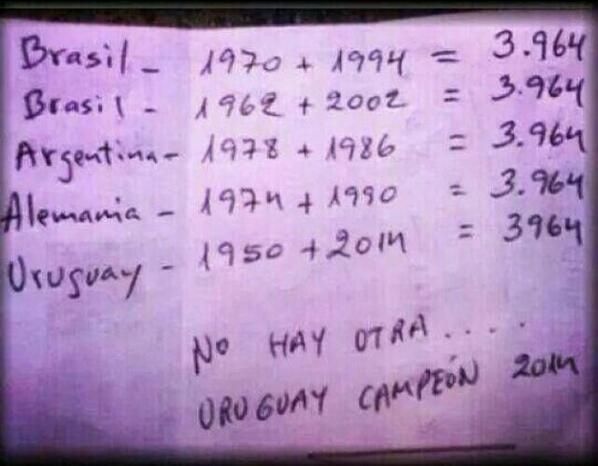 Brasil - 1970 + 1994 = 3.964
Brasil - 1962 + 2002 = 3.964
Argentina - 1978 + 1986 = 3.964
Alemania - 1974 + 1990 = 3.964
Uruguay - 1950 + 2014 = 3964
NO HAY OTRA.....
URUGUAY CAMPEÓN 2014